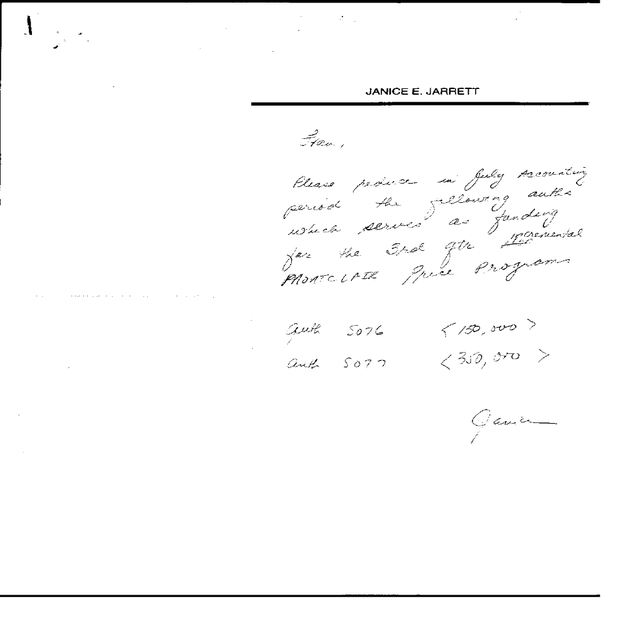 JANICE E. JARRETT
Fran,
Please reduce in July Accounting
period the following auths
which serves as funding
for the 3rd qtr incremental
MONTCLAIR Price Programs
Auth 5076 <150,000>
Auth 5077 <350,000>
Janice